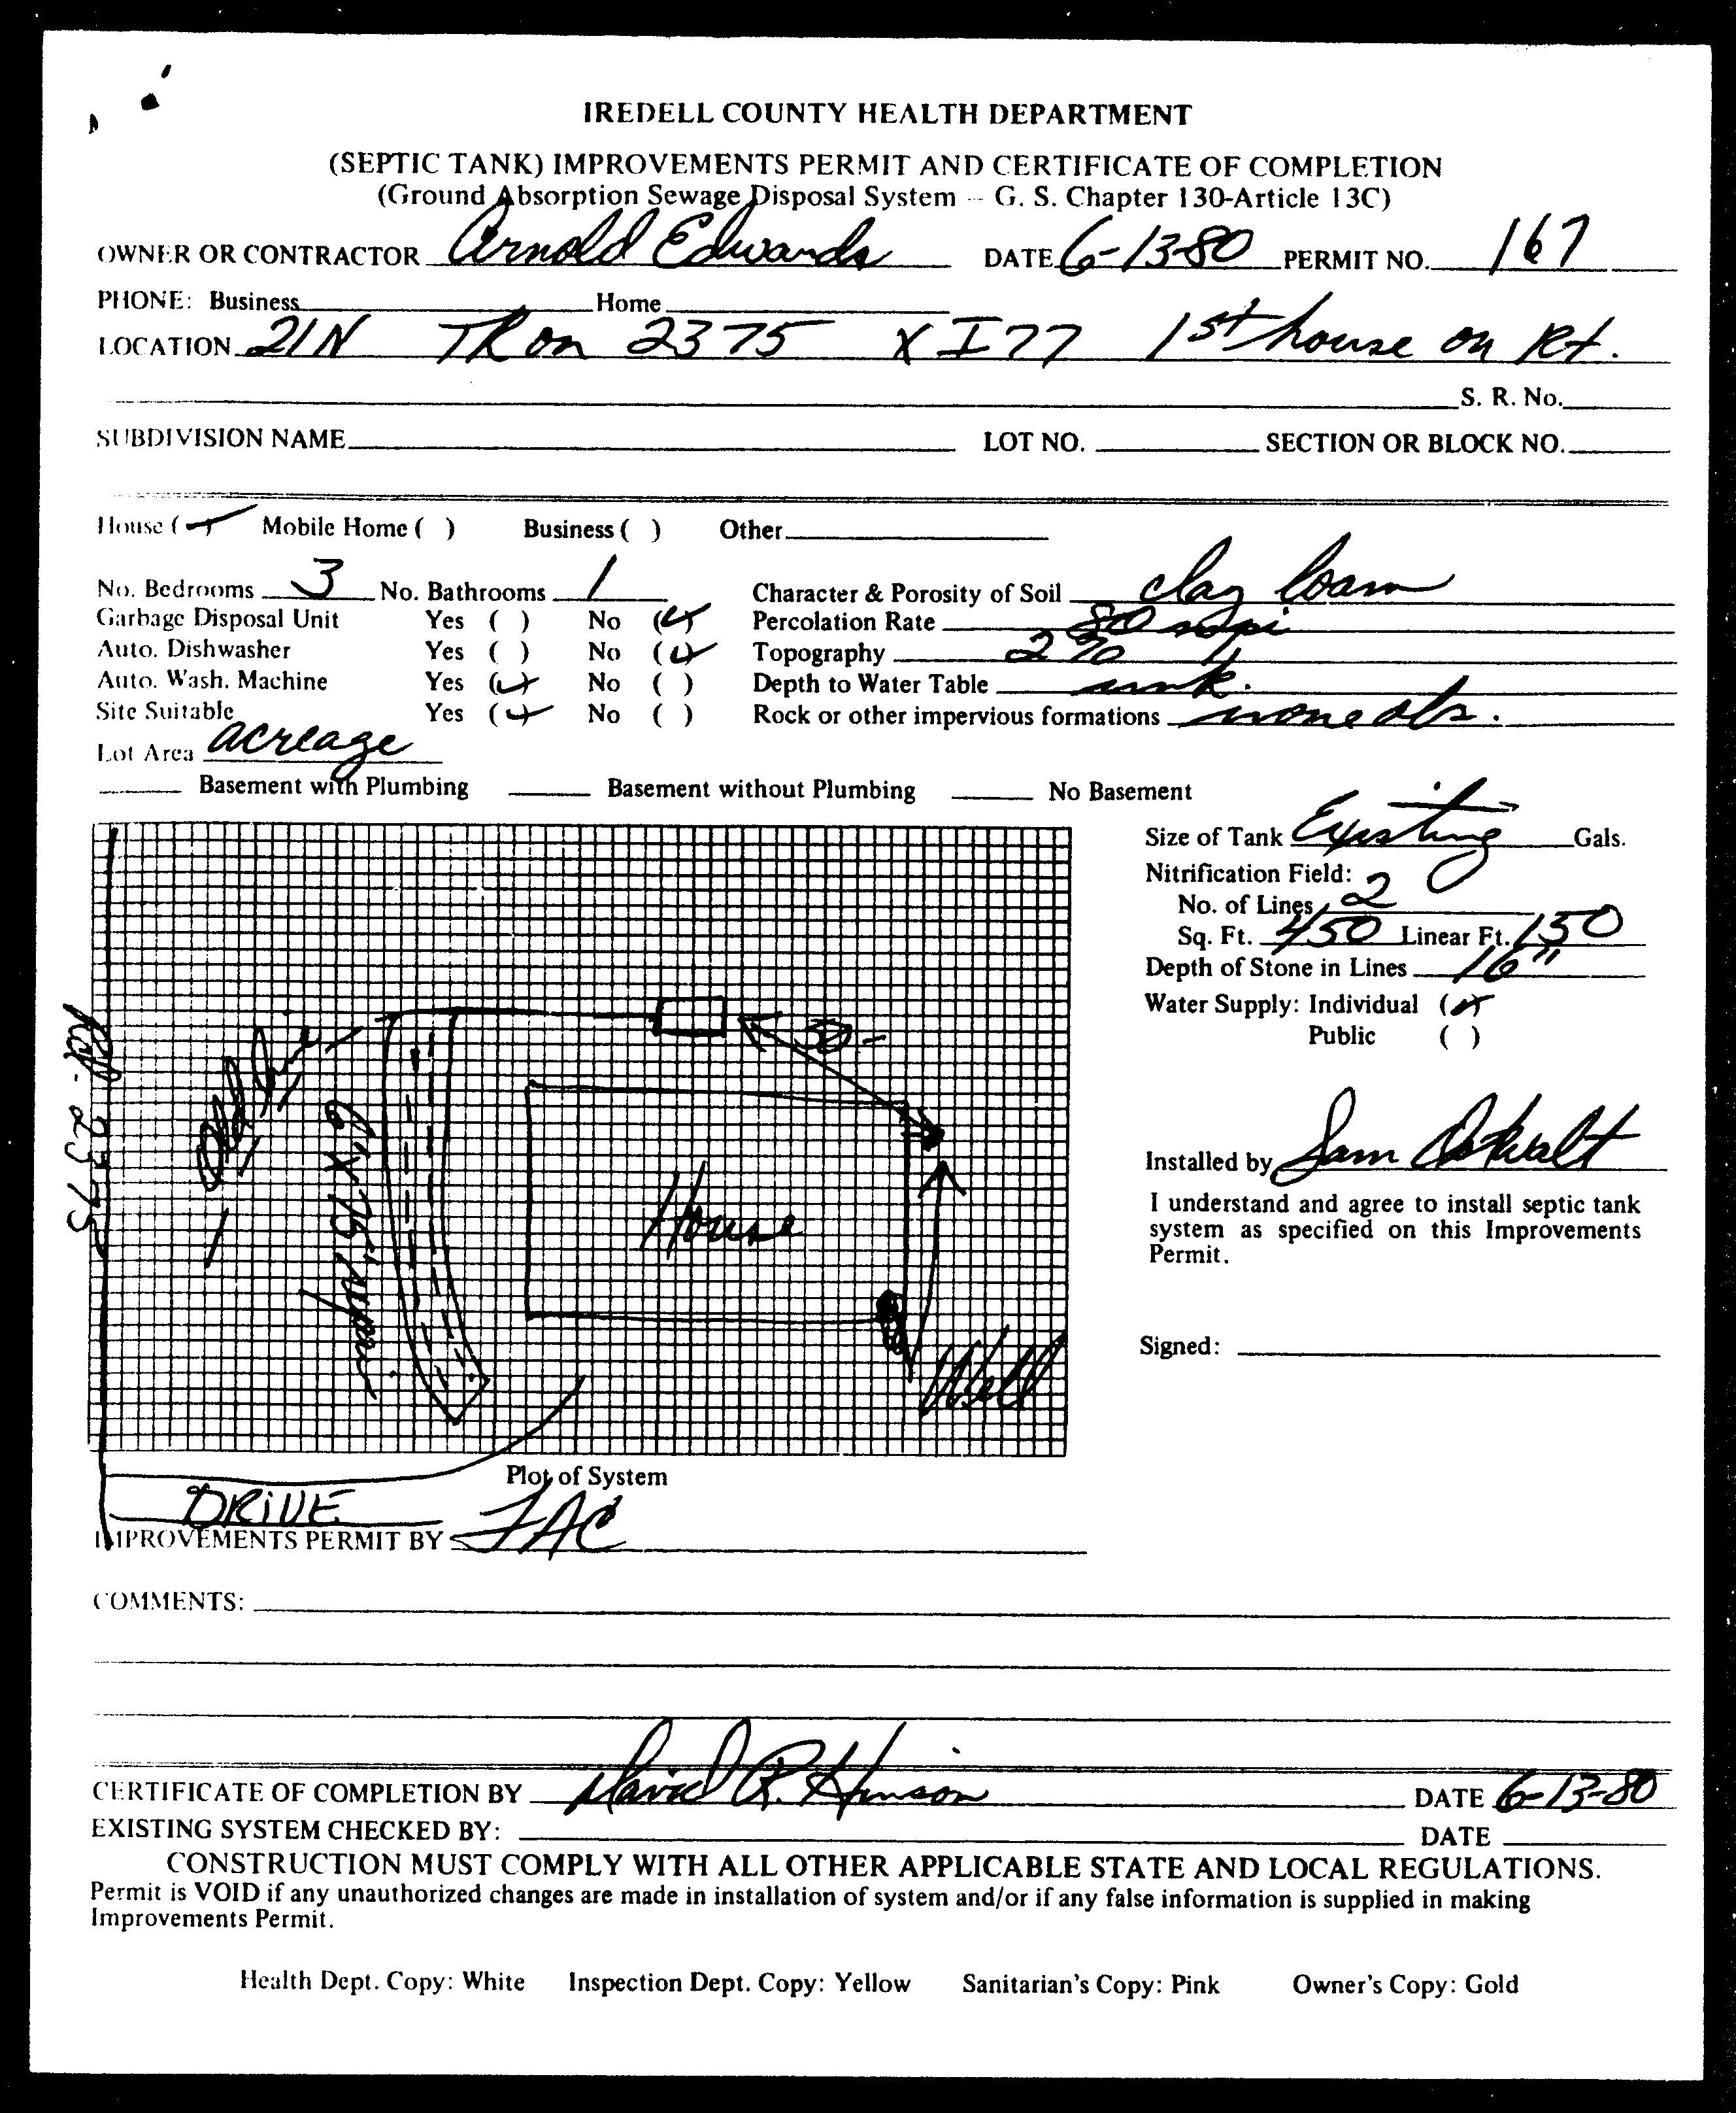 IREDELL COUNTY HEALTH DEPARTMENT
(SEPTIC TANK) IMPROVEMENTS PERMIT AND CERTIFICATE OF COMPLETION
(Ground Absorption Sewage Disposal System -- G. S. Chapter 130-Article 13C)
OWNER OR CONTRACTOR Arnold Edwards DATE 6-13-80 PERMIT NO. 167
PHONE: Business Home
LOCATION 21N TR on 2375 X I77 1st house on Rt.
S. R. No.
SUBDIVISION NAME LOT NO. SECTION OR BLOCK NO.
House (✓) Mobile Home ( ) Business ( ) Other
No. Bedrooms 3 No. Bathrooms 1 Character & Porosity of Soil clay loam
Garbage Disposal Unit Yes ( ) No (✓) Percolation Rate 80
Auto. Dishwasher Yes ( ) No (✓) Topography 2%
Auto. Wash. Machine Yes (✓) No ( ) Depth to Water Table unk.
Site Suitable Yes (✓) No ( ) Rock or other impervious formations none obs.
Lot Area acreage
Basement with Plumbing Basement without Plumbing No Basement
Size of Tank Existing Gals.
Nitrification Field:
No. of Lines 2
Sq. Ft. 450 Linear Ft. 150
Depth of Stone in Lines 16"
Water Supply: Individual (✓)
Public ( )
Rd. 2375
Old line
6' X 75'
50
House
Well
Installed by Sam Ostwalt
I understand and agree to install septic tank
system as specified on this Improvements
Permit.
Signed:
Plot of System
DRIVE
IMPROVEMENTS PERMIT BY JAC
COMMENTS:
CERTIFICATE OF COMPLETION BY David R. Hinson DATE 6-13-80
EXISTING SYSTEM CHECKED BY: DATE
CONSTRUCTION MUST COMPLY WITH ALL OTHER APPLICABLE STATE AND LOCAL REGULATIONS.
Permit is VOID if any unauthorized changes are made in installation of system and/or if any false information is supplied in making
Improvements Permit.
Health Dept. Copy: White Inspection Dept. Copy: Yellow Sanitarian's Copy: Pink Owner's Copy: Gold